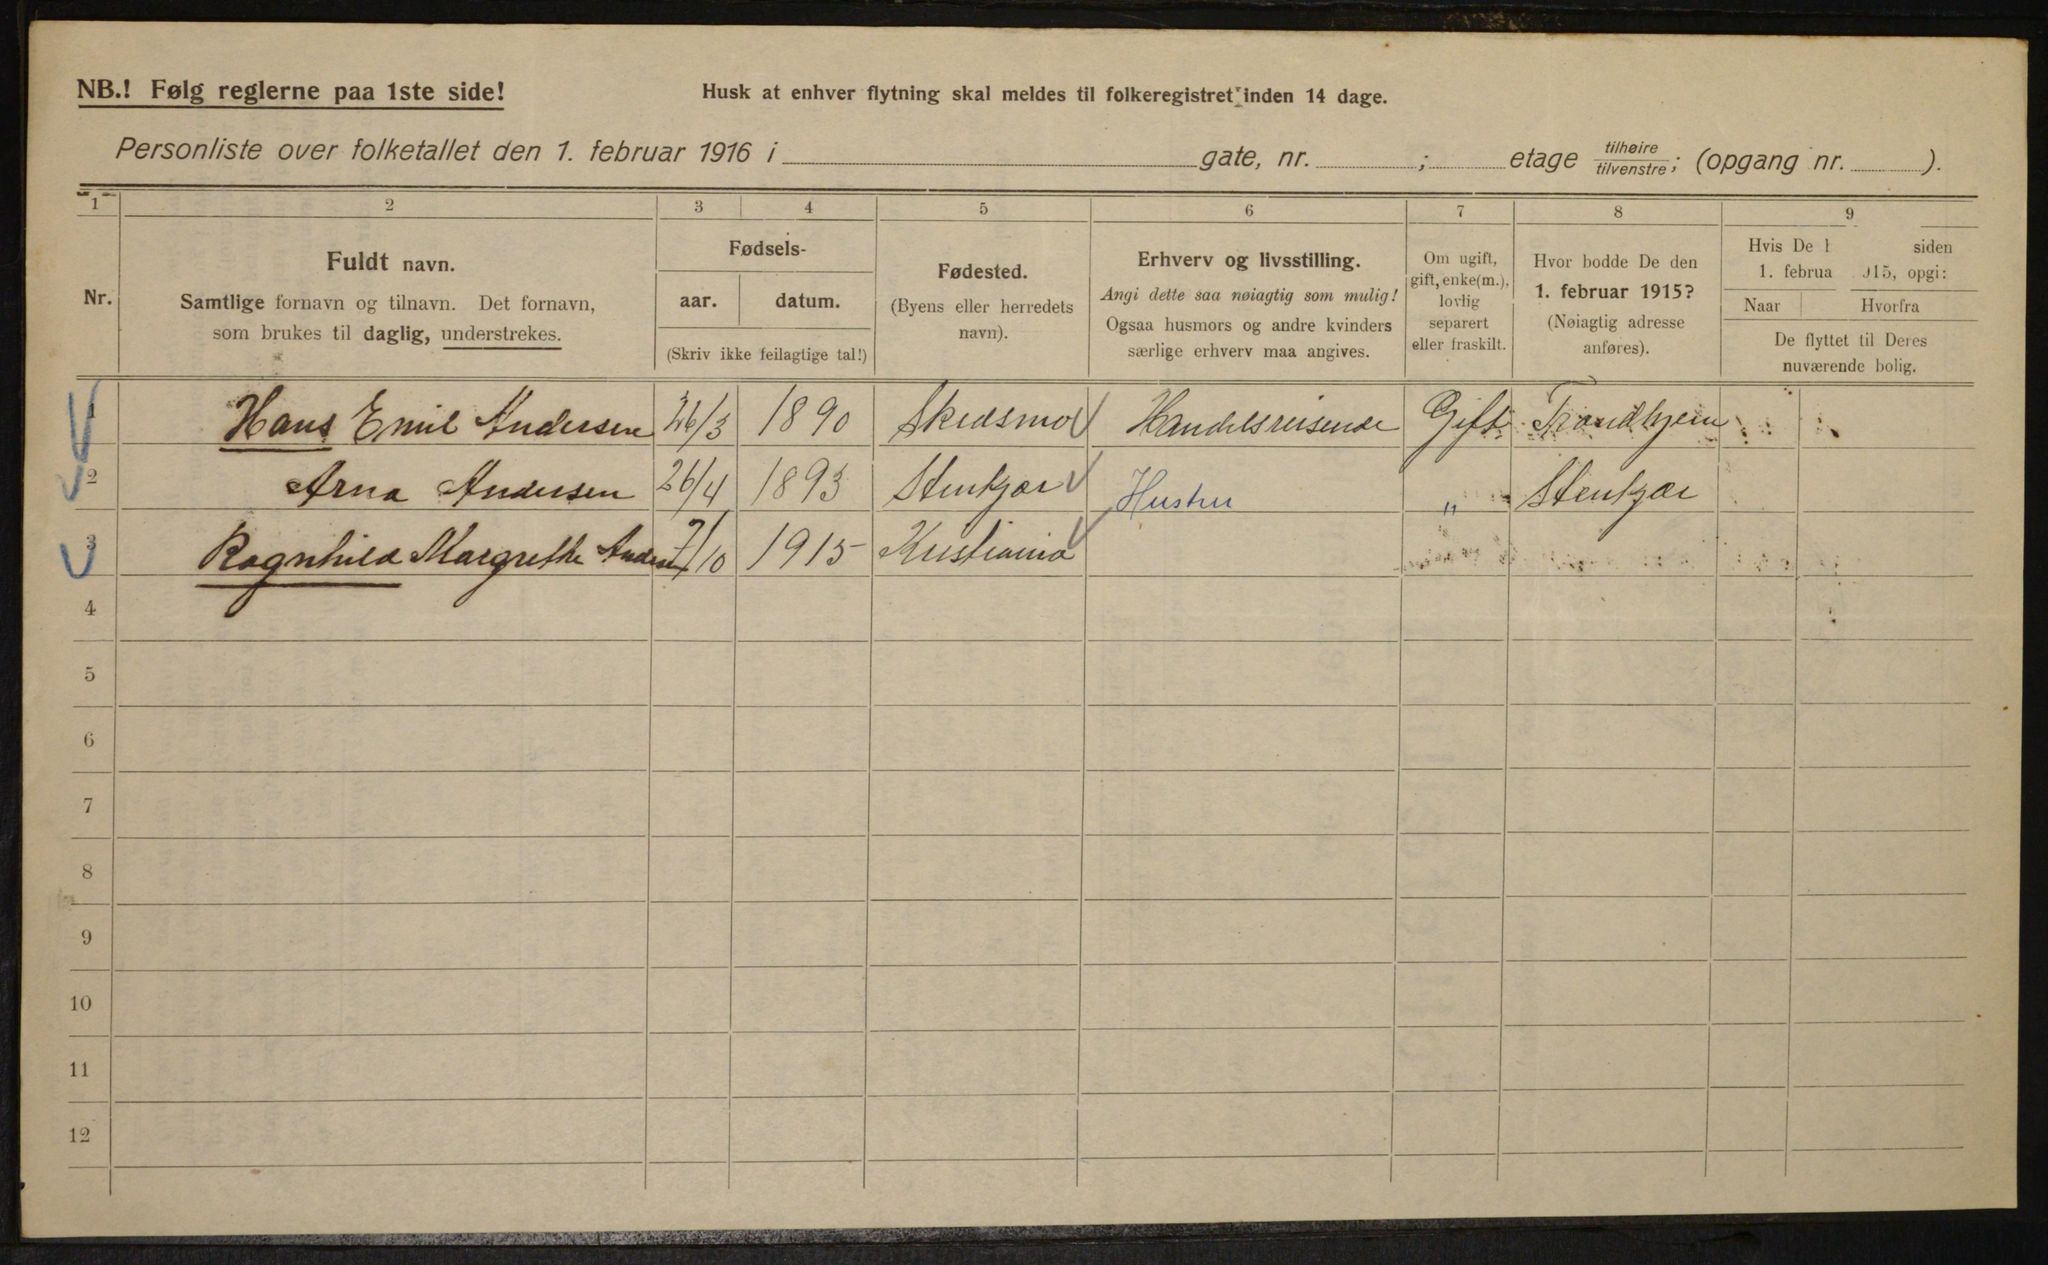 NB.! Følg reglerne paa 1ste side!
Husk at enhver flytning skal meldes til folkeregistret inden 14 dage.
Personliste over folketallet den 1. februar 1916 i gate, nr. ; etage tilhøire tilvenstre; (opgang nr. ).
1 2 3 4 5 6 7 8 9
Nr.
Fuldt navn.
Samtlige fornavn og tilnavn. Det fornavn,
som brukes til daglig, understrekes.
Fødsels-
aar. datum.
(Skriv ikke feilagtige tal!)
Fødested.
(Byens eller herredets
navn).
Erhverv og livsstilling.
Angi dette saa nøiagtig som mulig!
Ogsaa husmors og andre kvinders
særlige erhverv maa angives.
Om ugift,
gift, enke(m.),
lovlig
separert
eller fraskilt.
Hvor bodde De den
1. februar 1915?
(Nøiagtig adresse
anføres).
Hvis De siden
1. februa 915, opgi:
Naar Hvorfra
De flyttet til Deres
nuværende bolig.
1 Hans Emil Andersen 26/3 1890 Skedsmo Handelsreisende Gift Trondhjem
2 Arna Andersen 26/4 1893 Stenkjær Hustru " Stenkjær
3 Ragnhild Margrethe Andersen 7/10 1915 Kristiania
4
5
6
7
8
9
10
11
12